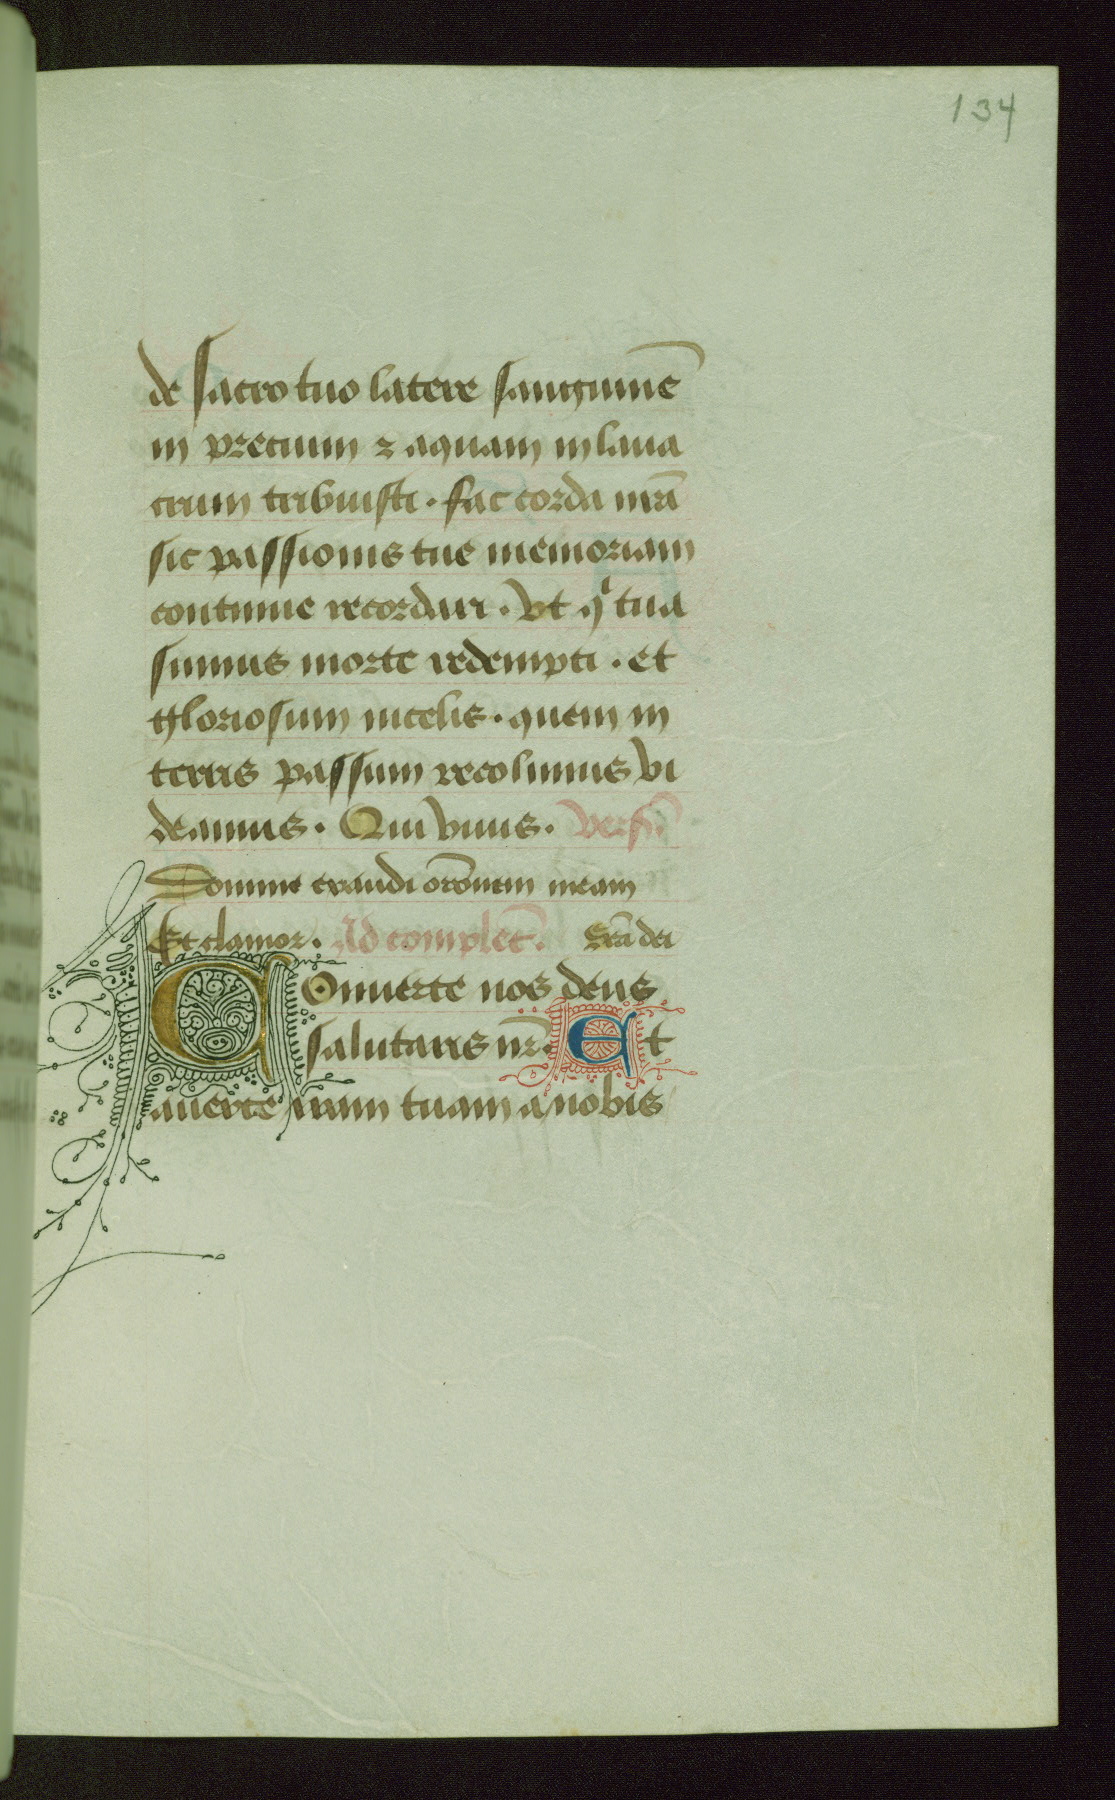 134
de sacro tuo latere sanguinē
in precium ⁊ aquam in laua
crum tribuisti · fac corda nr̄a
sic passionis tue memoriam
continue recordari · Vt qͥ tua
sumus morte redempti · et
gloriosum in celis · quem in
terris passum recolimus vi
deamus · Qui viuis · vers̄
Domine exaudi or̄onem meam
Et clamor · Ad complet̄ · Gr̄a dei
Conuerte nos deus
salutaris nr̄ · Et
auerte iram tuam a nobis